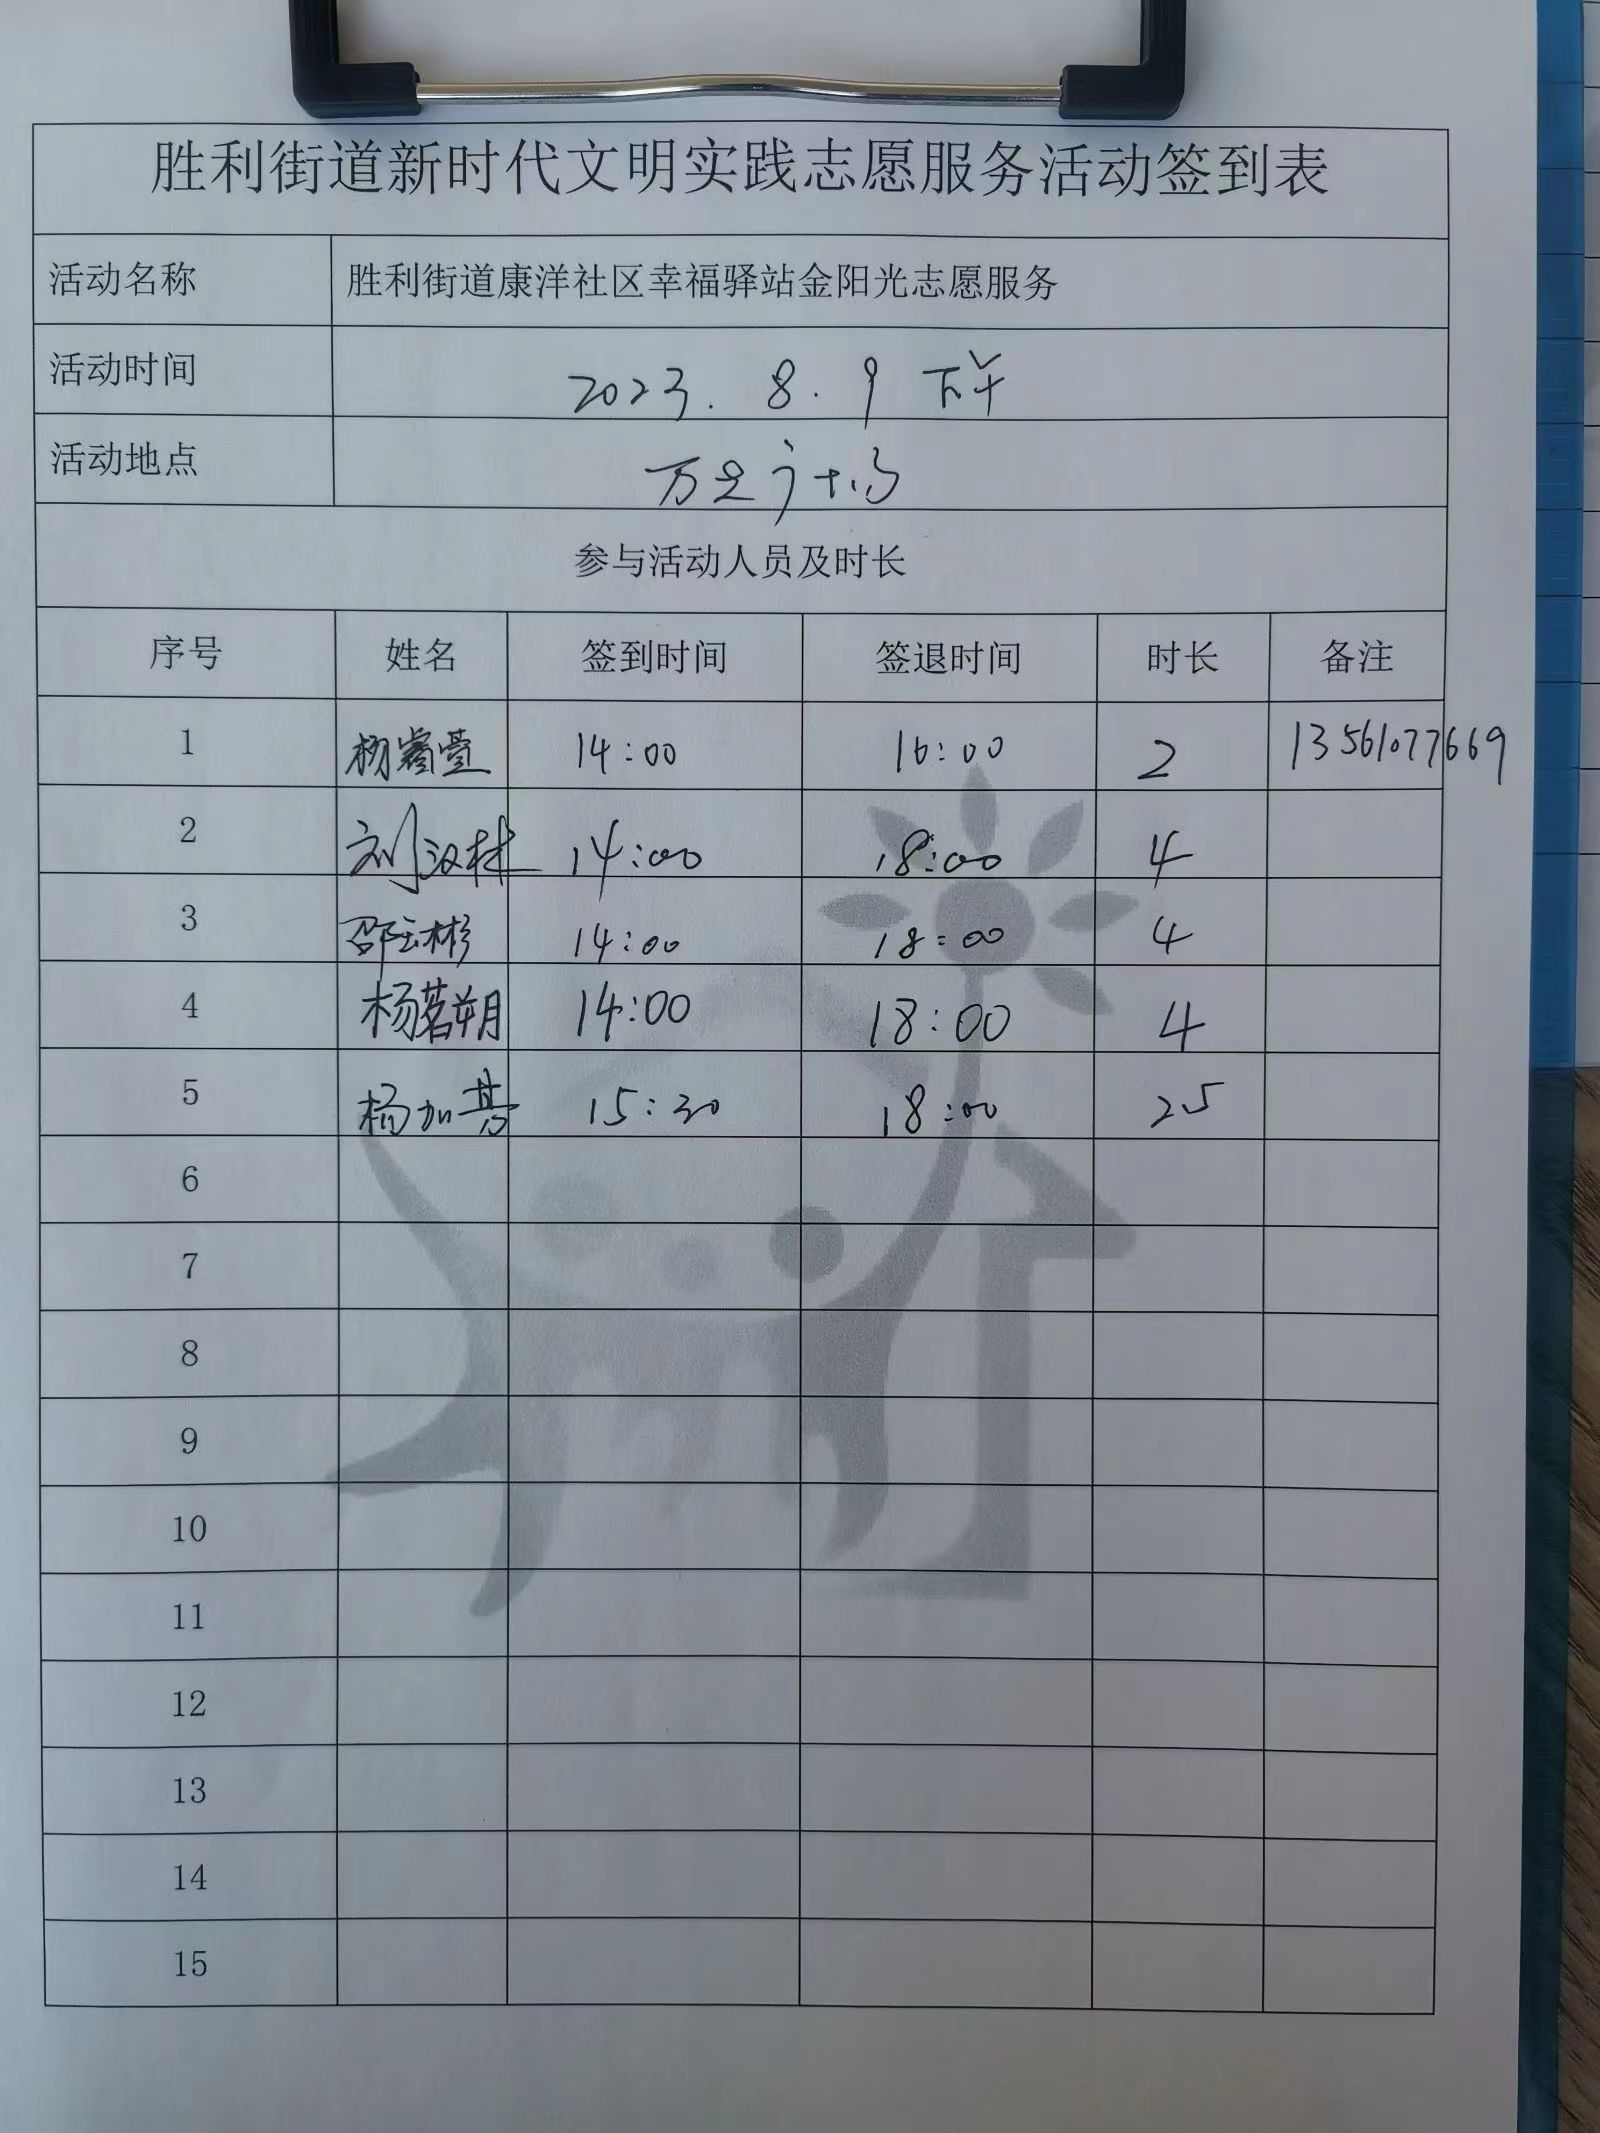 胜利街道新时代文明实践志愿服务活动签到表
活动名称 胜利街道康洋社区幸福驿站金阳光志愿服务
活动时间 2023. 8. 9 下午
活动地点 万达广场
参与活动人员及时长
序号 姓名 签到时间 签退时间 时长 备注
1 杨睿 14:00 16:00 2 13561077669
2 刘汉林 14:00 18:00 4
3 邵 彬 14:00 18:00 4
4 杨茗朔 14:00 18:00 4
5 杨加 15:30 18:00 2.5
6
7
8
9
10
11
12
13
14
15